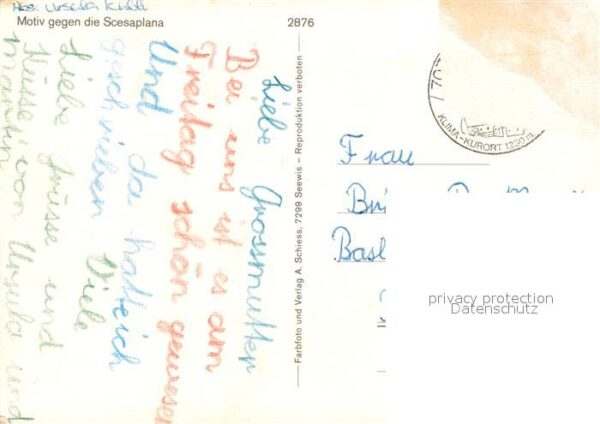 Abs: Ursula
Motiv gegen die Scesaplana
2876
Liebe Grossmutter
Bei uns ist es am
Freitag schön gewesen
Und da hab ich
geschrieben Viele
Liebe Grüsse und
Küsse von Ursula und
Farbfoto und Verlag A. Schiess, 7299 Seewis – Reproduktion verboten
KLIMA-KURORT
Frau
privacy protection
Datenschutz